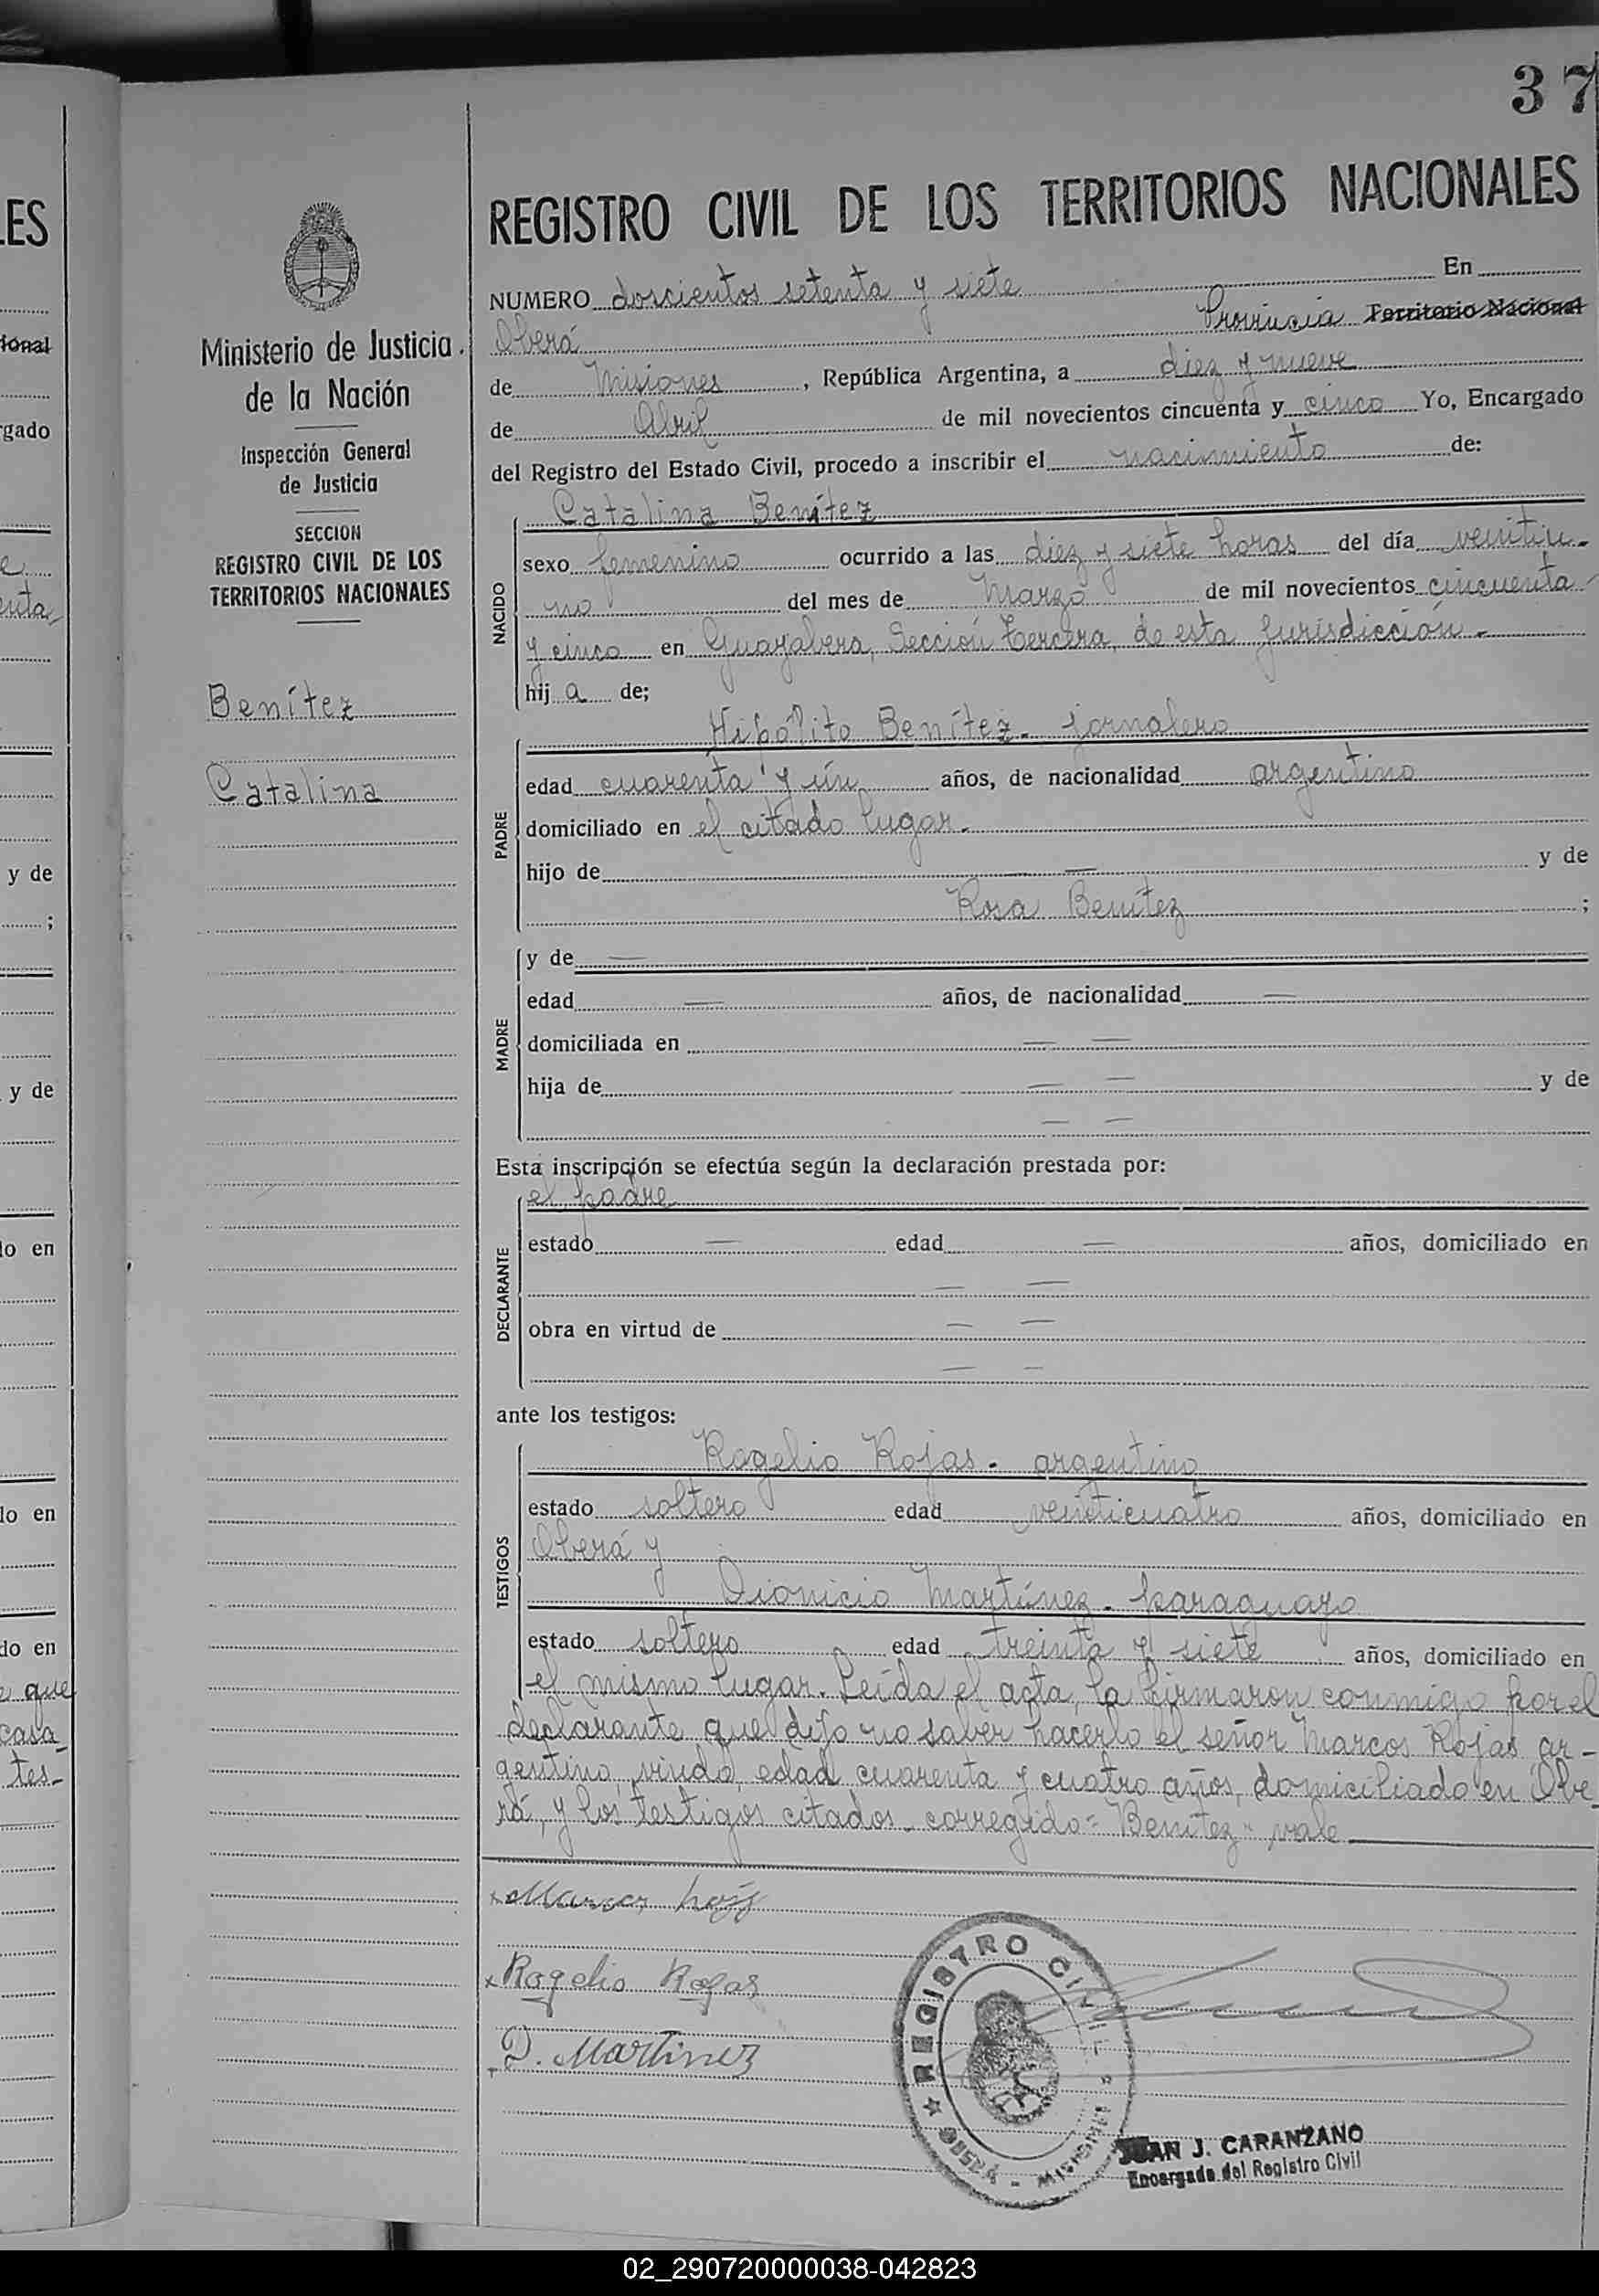 37
REGISTRO CIVIL DE LOS TERRITORIOS NACIONALES
Ministerio de Justicia
de la Nación
Inspección General
de Justicia
SECCION
REGISTRO CIVIL DE LOS
TERRITORIOS NACIONALES
Benítez
Catalina
NUMERO doscientos setenta y siete En
Oberá Provincia Territorio Nacional
de Misiones, República Argentina, a diez y nueve
de Abril de mil novecientos cincuenta y cinco Yo, Encargado
del Registro del Estado Civil, procedo a inscribir el nacimiento de:
NACIDO
Catalina Benítez
sexo femenino ocurrido a las diez y siete horas del día veintiu-
no del mes de Marzo de mil novecientos cincuenta
y cinco en Guayabera, Sección tercera, de esta Jurisdicción.-
hij a de;
PADRE
Hipólito Benítez - jornalero
edad cuarenta y ún años, de nacionalidad argentino
domiciliado en el citado lugar.
hijo de — — y de
Rosa Benítez ;
MADRE
y de —
edad — años, de nacionalidad —
domiciliada en — —
hija de — — y de
— —
Esta inscripción se efectúa según la declaración prestada por:
DECLARANTE
el padre
estado — edad — años, domiciliado en
— —
obra en virtud de — —
— —
ante los testigos:
TESTIGOS
Rogelio Rojas - argentino
estado soltero edad veinticuatro años, domiciliado en
Oberá y
Dionicio Martínez - paraguayo
estado soltero edad treinta y siete años, domiciliado en
el mismo lugar. Leída el acta, la firmaron conmigo por el
declarante que dijo no saber hacerlo el señor Marcos Rojas ar-
gentino, viudo, edad cuarenta y cuatro años, domiciliado en Obe-
rá, y los testigos citados - corregido = Benítez" vale
x Marcos
x Rogelio Rojas
D. Martinez
REGISTRO CIVIL
OBERA - MISIONES
JUAN J. CARANZANO
Encargado del Registro Civil
02_290720000038-042823